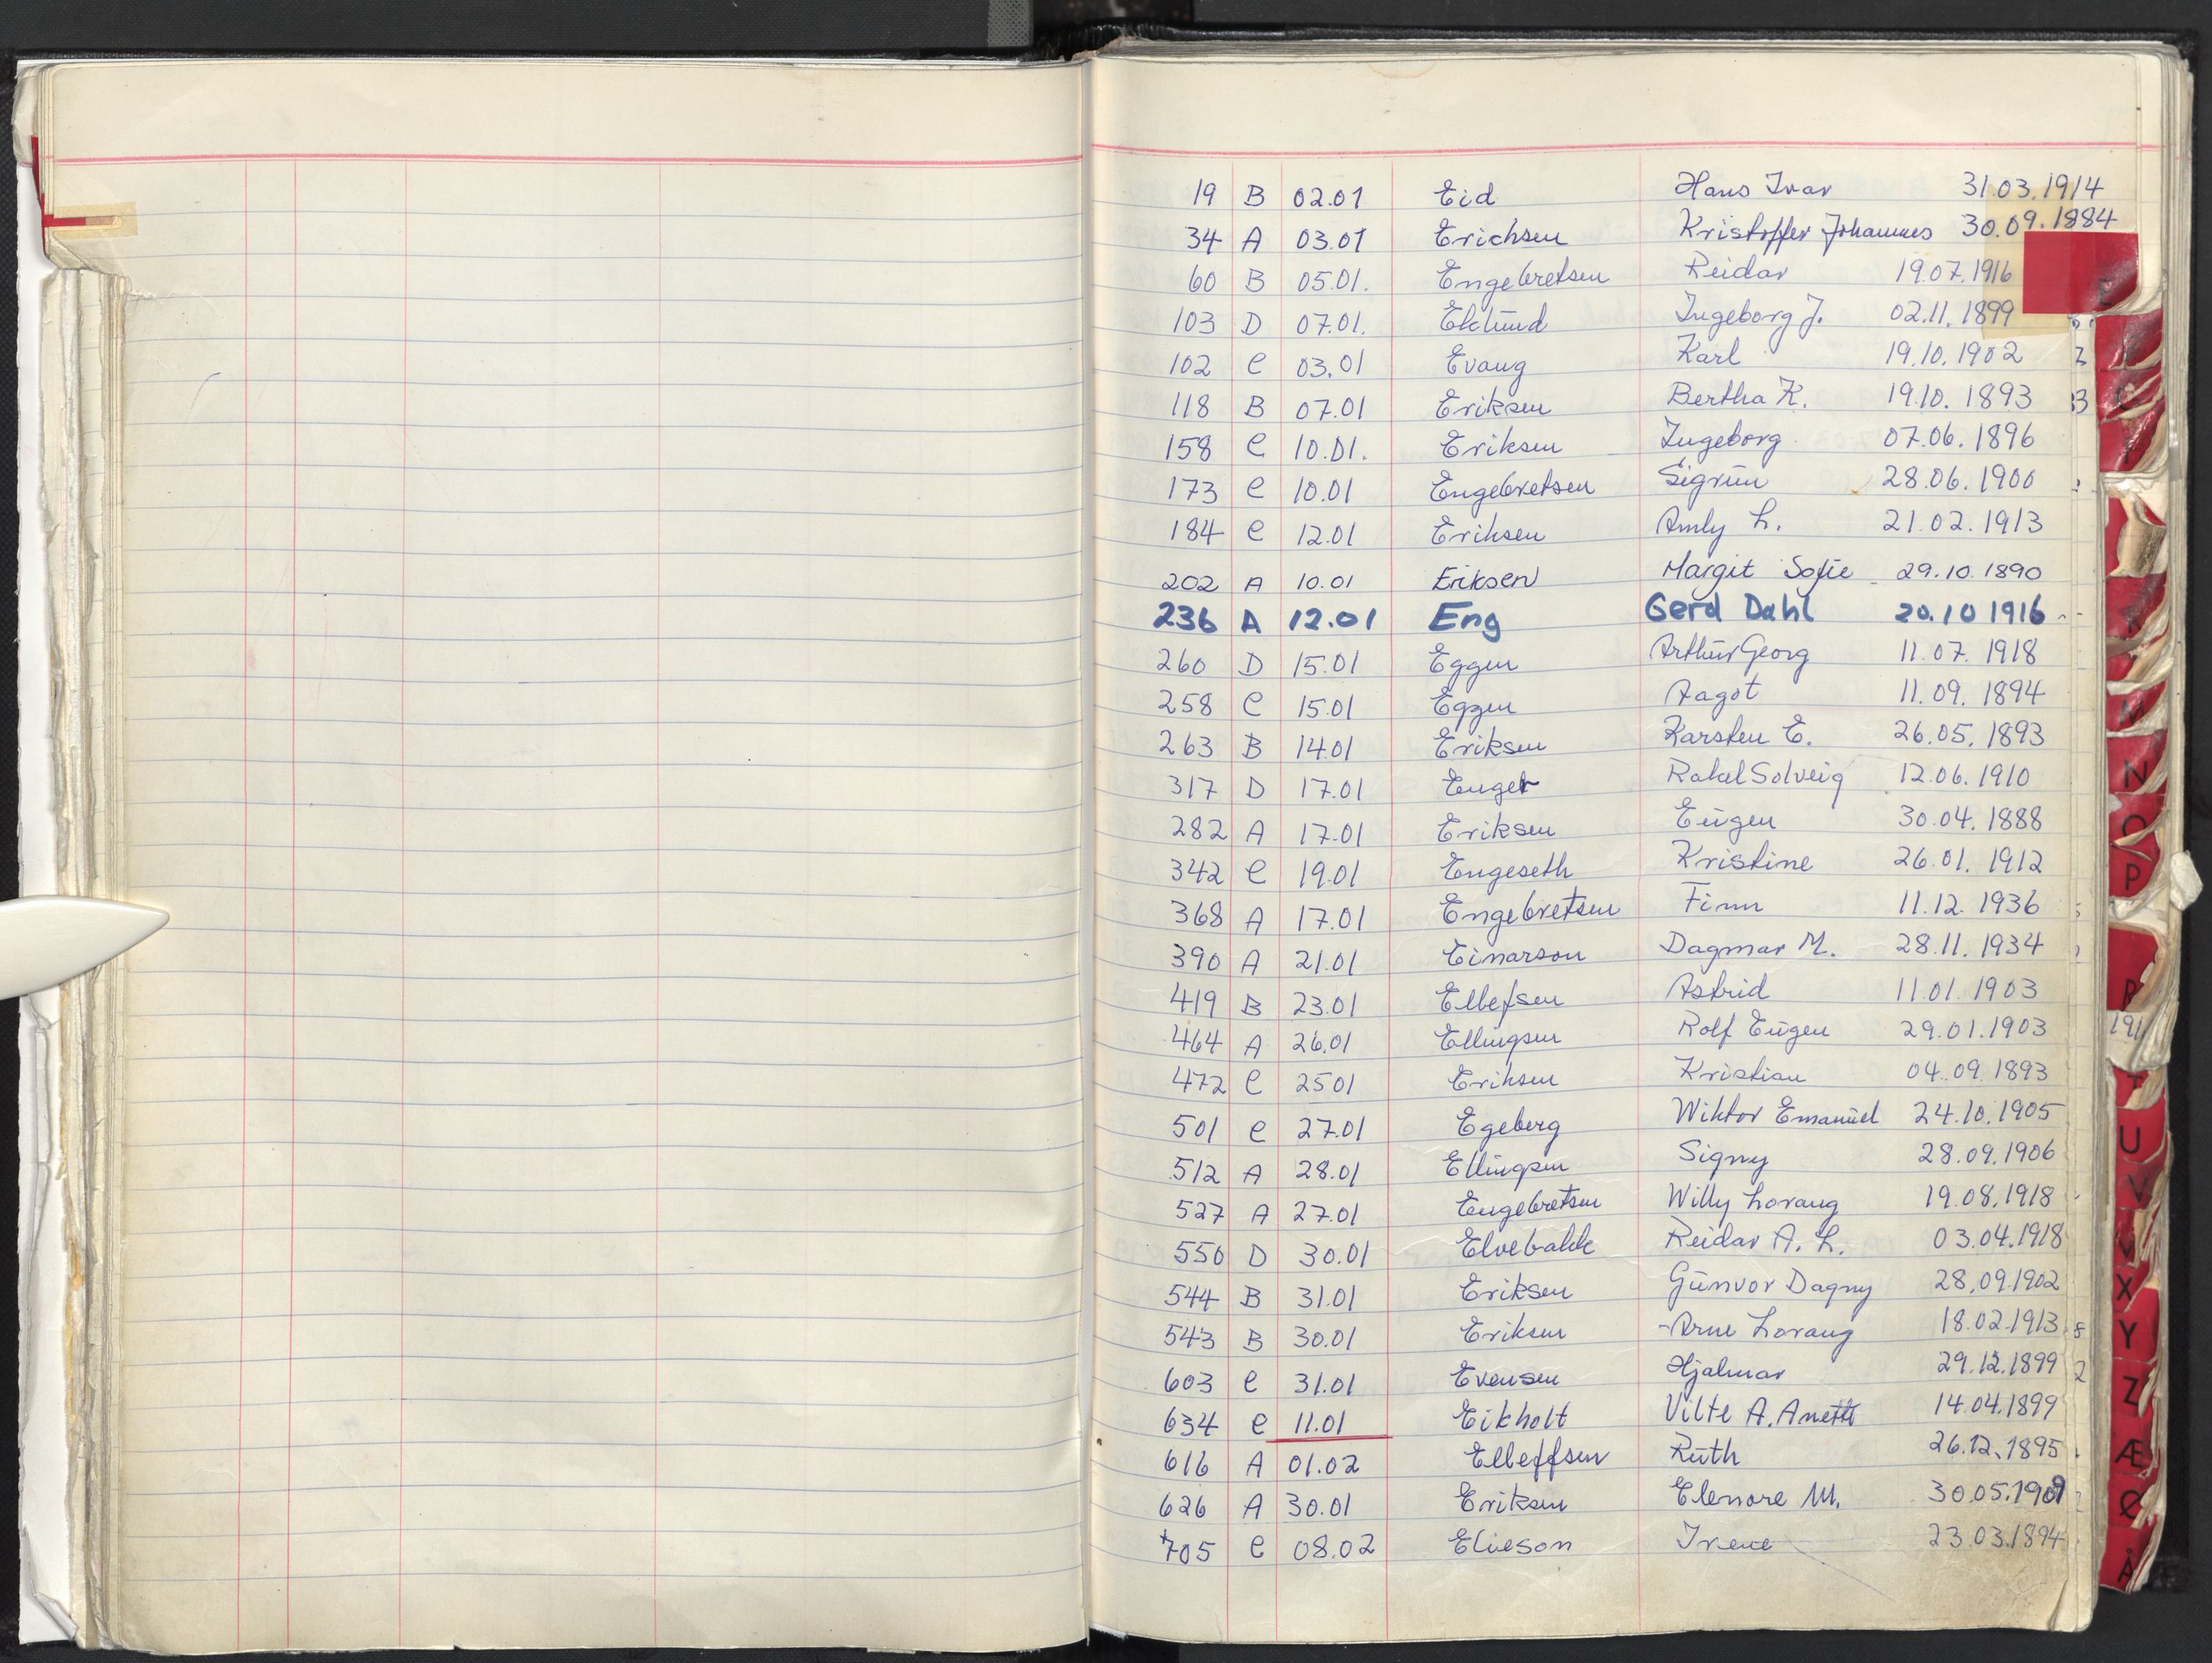 19 B 02.01 Eid Hans Ivar 31.03.1914
34 A 03.01 Erichsen Kristoffer Johannes 30.09.1884
60 B 05.01. Engebretsen Reidar 19.07.1916
103 D 07.01. Eklund Ingeborg J. 02.11.1899
102 C 03.01 Evang Karl 19.10.1902
118 B 07.01 Eriksen Bertha K. 19.10.1893
158 C 10.01. Eriksen Ingeborg 07.06.1896
173 C 10.01 Engebretsen Sigrun 28.06.1900
184 C 12.01 Eriksen Amly L. 21.02.1913
202 A 10.01 Eriksen Margit Sofie 29.10.1890
236 A 12.01 Eng Gerd Dahl 20.10 1916
260 D 15.01 Eggen Arthur Georg 11.07.1918
258 C 15.01 Eggen Aagot 11.09.1894
263 B 14.01 Eriksen Karsten E. 26.05.1893
317 D 17.01 Enger Rakel Solveig 12.06.1910
282 A 17.01 Eriksen Eugen 30.04.1888
342 C 19.01 Engeseth Kristine 26.01.1912
368 A 17.01 Engebretsen Finn 11.12.1936
390 A 21.01 Einarson Dagmar M. 28.11.1934
419 B 23.01 Ellefsen Astrid 11.01.1903
464 A 26.01 Ellingsen Rolf Eugen 29.01.1903
472 C 2501 Eriksen Kristian 04.09.1893
501 C 27.01 Egeberg Wiktor Emanuel 24.10.1905
512 A 28.01 Ellingsen Signy 28.09.1906
527 A 27.01 Engebretsen Willy Lorang 19.08.1918
550 D 30.01 Elvebakk Reidar A. L. 03.04.1918
544 B 31.01 Eriksen Gunvor Dagny 28.09.1902
543 B 30.01 Eriksen Arne Lorang 18.02.1913
603 C 31.01 Evensen Hjalmar 29.12.1899
634 C 11.01 Eikholt Vilte A. Anette 14.04.1899
616 A 01.02 Elleffsen Ruth 26.12.1895
626 A 30.01 Eriksen Elenore M. 30.05.1909
705 C 08.02 Elieson Irene 23.03.1894
E
C
M
N
O
P
R
191
T
U
V
X
Y
Z
Æ
Ø
Å